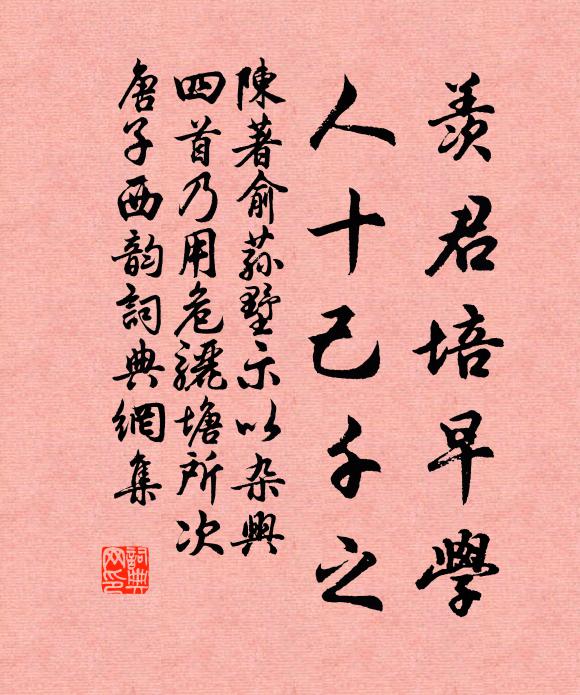 羨君培早學
人十己千之
陳著俞蓀墅示以杂興
四首乃用危驪塘所次
唐子西韵詞典網集
詞典网印